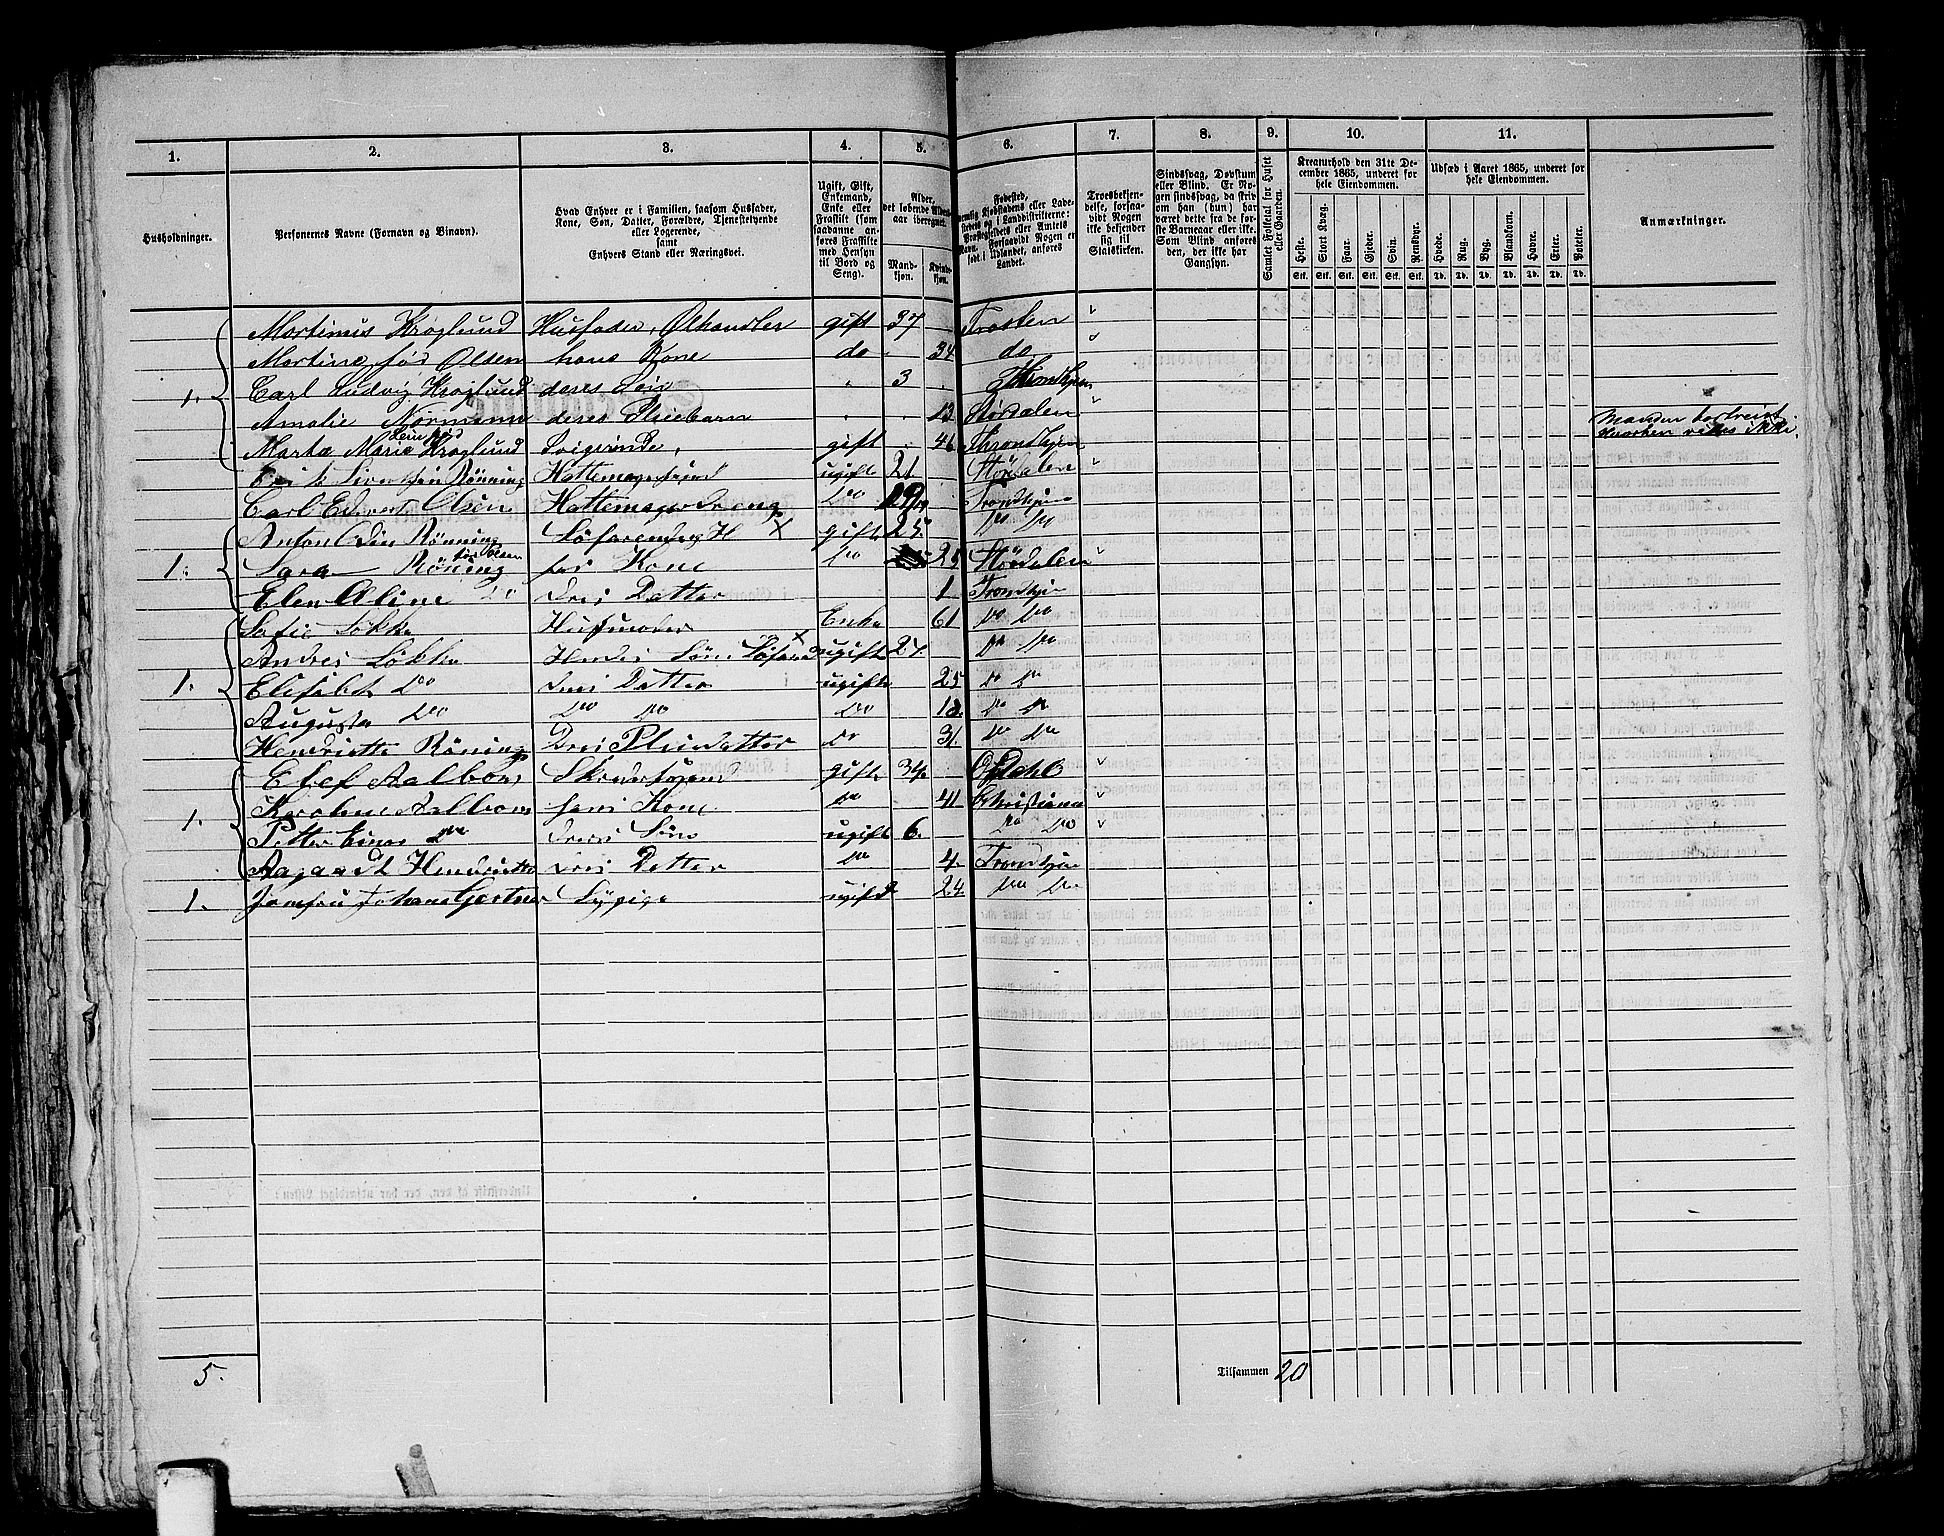 1. 2. 3. 4. 5. 6. 7. 8. 9. 10. 11.
Husholdninger.
Personernes Navne (Fornavn og Binavn).
Hvad Enhver er i Familien, saasom Husfader,
Kone, Søn, Datter, Forældre, Tjenestetyende
eller Logerende,
samt
Enhvers Stand eller Næringsvei.
Ugift, Gift,
Enkemand,
Enke eller
Fraskilt (som
saadanne an-
føres Fraskilte
med Hensyn
til Bord og
Seng).
Alder,
det løbende Alders-
aar iberegnet.
Mand-
kjøn.
Kvind-
kjøn.
Fødested,
nemlig Kjøbstadens eller Lade-
stedets og i Landdistrikterne:
Præstegjeldets eller Amtets
Navn. Forsaavidt Nogen er
født i Udlandet, anføres
Landet.
Troesbekjen-
delse, forsaa-
vidt Nogen
ikke bekjender
sig til
Statskirken.
Sindssvag, Døvstum
eller Blind. Er No-
gen sindssvag, da skriv
om han (hun) har
været dette fra de før-
ste Barneaar eller ikke.
Som Blind anføres
den, der ikke har
Gangsyn.
Samlet Folketal for Huset
eller Gaarden.
Kreaturhold den 31te De-
cember 1865, underet for
hele Eiendommen.
Heste. Stort Kvæg. Faar. Gjeder. Svin. Rensdyr.
Stk. Stk. Stk. Stk. Stk. Stk.
Udsæd i Aaret 1865, underet for
hele Eiendommen.
Hvede. Rug. Byg. Blandkorn. Havre. Erter. Poteter.
Td. Td. Td. Td. Td. Td. Td.
Anmærkninger.
Mortinus Krøglund Husfader, Ølhandler gift 37 Frosten "
Mortine fød Olsen hans Kone do 34 do "
1. Carl Ludvig Krøglund deres Søn " 3 Throndhjem
Amalie Normann deres Pleiebarn " 12 Størdalen "
Marta Marie Krøglund fød Svigerinde, gift 46 Throndhjem Manden bortreist
hvorhen vides ikke.
Sivertsen Rønning Hattemagersvend ugift 21 Størdalen "
Carl Edvert Olsen Hattemagerdreng Do 19 Trondhjem
Anton Odin Rönning Söfarende H X gift 25 Do Do
1. Sara Röning født Olsen hans Kone Do 25 Størdalen "
Elen Oline Do Dres Datter 1 Trondhjem
Sofie Løkke Husmoder Enke 61 Do Do
Andres Løkke Hendes Søn Söfarend X ugift 27. Do Do
1. Elisabet Do Dres Datter ugift 25 Do Do
Augusta Do Do Do Do 18. Do Do
Henriette Röning Dres Pleiedatter Do 31. Do Do
Elef Aalbon Skredersvend gift 34. Opdahl "
1. Karoline Aalbon hans Kone Do 41 Christiana "
Petter Einar Do Dres Sön ugift 6. Do Do "
Aagardt Hendriette Dres Datter Do 4. Trondhjem
1. Jomfru Johana Gertner Sypige ugift 24. Do Do
5.
Tilsammen 20